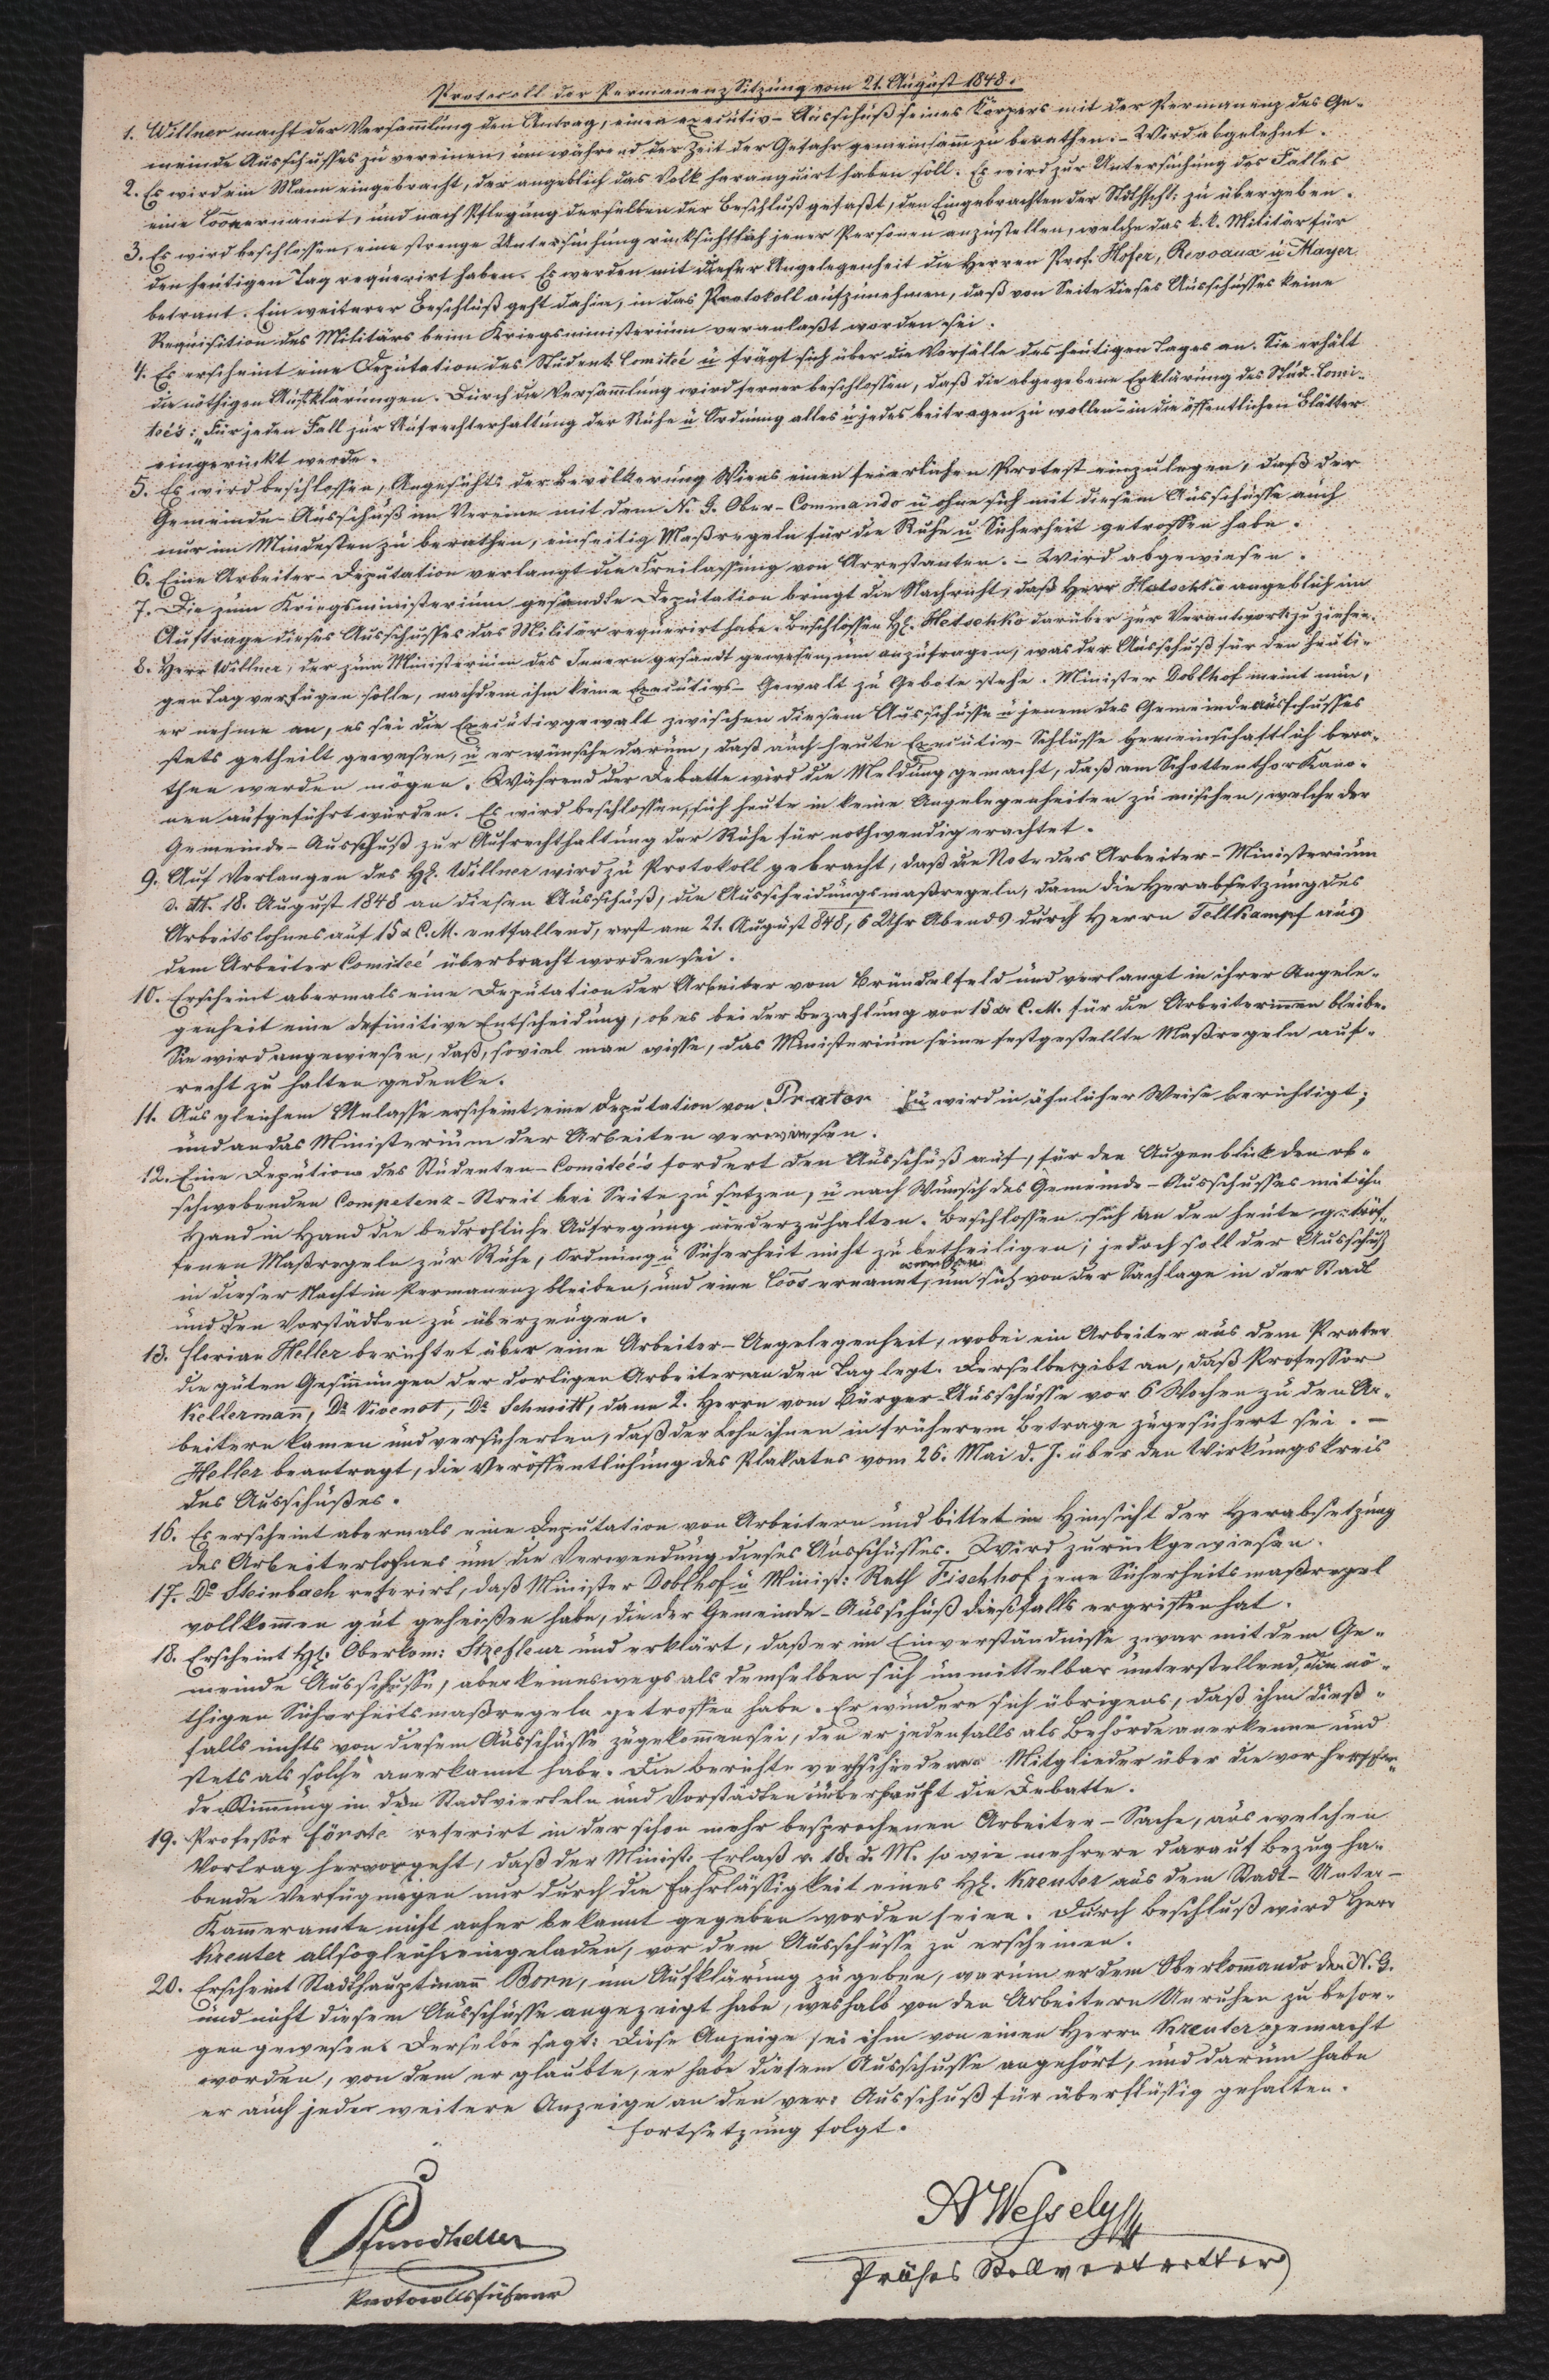 Protocoll der Permanenz Sitzung vom 21. August 1848.
1. Willner macht der Versam̄lung den Antrag, einen executiv-Ausschuß seines Körpers mit der Permanenz des Ge-
meinde Ausschusses zu vereinen, um während der Zeit der Gefahr gemeinsam̄ zu berathen. – Wird abgelehnt.
2. Es wird ein Mann eingebracht, der angeblich das Volk haranguirt haben soll. Es wird zur Untersuchung des Falles
eine Coon ernannt, und nach Pflegung derselben der Beschluß gefaßt, den Eingebrachten der Stdthptsch: zu übergeben.
3. Es wird beschlossen, eine strenge Untersuchung rücksichtlich jener Personen anzustellen, welche das k. k. Militär für
den heutigen Tag requerirt haben. Es werden mit dieser Angelegenheit die Herren Prof. Hofer, Revoaux u Mayer
betraut. Ein weiterer Beschluß geht dahin, in das Protokoll aufzunehmen, daß von Seite dieses Ausschusses keine
Requisition des Militärs beim Kriegsministerium veranlaßt worden sei.
4. Es erscheint eine Deputation des Student: Comiteé u frägt sich über die Vorfälle des heutigen Tages an. Sie erhält
die nöthigen Aufklärungen. Durch die Versam̄lung wird ferner beschlossen, daß die abgegebene Erklärung des Stud. Comi-
teés: „Für jeden Fall zur Aufrechterhaltung der Ruhe u Ordnung alles u jedes beitragen zu wollen“ in die öffentlichen Blätter
eingerückt werde.
5. Es wird beschlossen, Angesichts der Bevölkerung Wiens einen feierlichen Protest einzulegen, daß der
Gemeinde-Ausschuß im Vereine mit dem N. G. Ober-Commando u ohne sich mit diesem Ausschusse auch
nur im Mindesten zu berathen, einseitig Maßregeln für die Ruhe u Sicherheit getroffen habe.
6. Eine Arbeiter-Deputation verlangt die Freilassung von Arrestanten. – Wird abgewiesen.
7. Die zum Kriegsministerium gesandte Deputation bringt die Nachricht, daß Herr Hatschko angeblich im
Auftrage dieses Ausschusses das Militär requerirt habe. Beschlossen H. Hatschko darüber zur Verantwort: zu ziehen.
8. Herr Willner, der zum Ministerium des Innern gesandt gewesen, um anzufragen, was der Ausschuß für den heuti-
gen Tag verfügen solle, nachdem ihm keine Executivs-Gewalt zu Gebote stehe. Minister Doblhof meint nun,
er nehme an, es sei die Executivgewalt zwischen diesem Ausschusse u jenem des Gemeindeausschusses
stets getheilt gewesen, u er wünsche darum, daß auch heute Executiv-Schlüsse gemeinschaftlich bera-
then werden mögen. Während der Debatte wird die Meldung gemacht, daß am Schottenthor Kano-
nen aufgeführt würden. Es wird beschlossen, sich heute in keine Angelegenheiten zu mischen, welche der
Gemeinde-Ausschuß zur Aufrechthaltung der Ruhe für nothwendig erachtet.
9. Auf Verlangen des H. Willner wird zu Protokoll gebracht, daß die Note des Arbeiter-Ministerium
d. dtt. 18. August 1848 an diesen Ausschuß, die Ausscheidungsmaßregeln, dann die Herabsetzung des
Arbeitslohnes auf 15 x C. M. enthaltend, erst am 21. August 848, 6 Uhr Abends durch Herrn Tellkampf aus
dem Arbeiter Comiteé überbracht worden sei.
10. Erscheint abermals eine Deputation der Arbeiter vom Bründelfeld und verlangt in ihrer Angele-
genheit eine definitive Entscheidung, ob es bei der Bezahlung von 15 x C. M. für die Arbeiterin̄en bleibe.
Sie wird angewiesen, daß, soviel man wisse, das Ministerium seine festgestellte Maßregeln auf-
recht zu halten gedenke.
11. Aus gleichem Anlasse erscheint eine Deputation von Prater. Sie wird in ähnlicher Weise berichtigt,
und an das Ministerium der Arbeiten verwiesen.
12. Eine Depution des Studenten-Comiteé's fordert den Ausschuß auf, für den Augenblick den ob-
schwebenden Competenz-Streit bei Seite zu setzen, u nach Wunsch des Gemeinde-Ausschusses mit ihm
Hand in Hand die bedrohliche Aufregung niederzuhalten. Beschlossen sich an den heute getrof-
fenen Maßregeln zur Ruhe, Ordnung u Sicherheit nicht zu betheiligen; jedoch soll der Ausschuß
in dieser Nacht in Permanenz bleiben, und eine Coos ernannt werden, um sich von der Sachlage in der Stadt
und den Vorstädten zu überzeugen.
13. Florian Heller berichtet über eine Arbeiter-Angelegenheit, wobei ein Arbeiter aus dem Prater
die guten Gesin̄ungen der dortigen Arbeiter an den Tag legt. Derselbe gibt an, daß Professor
Kellermann̄, Dr. Vivenot, Dr. Schmitt, dann 2. Herrn vom Bürger-Ausschusse vor 6 Wochen zu den Ar-
beitern kamen und versicherten, daß der Lohn ihnen in früherem Betrage zugesichert sei. –
Heller beantragt, die Veröffentlichung des Plakates vom 26. Mai d. J. über den Wirkungskreis
des Ausschußes.
16. Es erscheint abermals eine Deputation von Arbeitern und bittet in Hinsicht der Herabsetzung
des Arbeiterlohnes um die Verwendung dieses Ausschusses. Wird zurückgewiesen.
17. Dr. Steinbach referirt, daß Minister Doblhof u Minist: Rath Fischhof jene Sicherheitsmaßregel
vollkom̄en gut geheißen habe, die der Gemeinde-Ausschuß dießfalls ergriffen hat.
18. Erscheint H. Oberkom: Strefleur und erklärt, daß er im Einverständnisse zwar mit dem Ge-
meinde Ausschusse, aber keineswegs als demselben sich unmittelbar unterstellend, die nö-
thigen Sicherheitsmaßregeln getroffen habe. Er wundere sich übrigens, daß ihm dieß-
falls nichts von diesem Ausschusse zugekom̄en sei, den er jedenfalls als Behörde anerkenne und
stets als solche anerkannt habe. Die Berichte verschiedener Mitglieder über die vorherrschen-
de Stimmung in den Stadtvierteln und Vorstädten überhäuft die Debatte.
19. Professor Förste referirt in der schon mehr besprochenen Arbeiter-Sache, aus welchen
Vortrag hervorgeht, daß der Minist: Erlaß v. 18. d. M. so wie mehrere darauf Bezug ha-
bende Verfügungen nur durch die Fahrlässigkeit eines H. Kreuter aus dem Stadt-Unter-
Kam̄eramte nicht anher bekannt gegeben worden seien. Durch Beschluß wird Herr
Kreuter allsogleich eingeladen, vor dem Ausschusse zu erscheinen.
20. Erscheint Stadthauptmann̄ Born, um Aufklärung zu geben, warum er dem Oberkom̄ando der N. G.
und nicht diesem Ausschusse angezeigt habe, weshalb von den Arbeitern Unruhen zu besor-
gen gewesen. Derselbe sagt: Diese Anzeige sei ihm von einen Herrn Kreuter gemacht
worden, von dem er glaubte, er habe diesem Ausschusse angehört, und darum habe
er auch jeder weitere Anzeige an den ver: Ausschuß für überflüssig gehalten.
Fortsetzung folgt.
Pfundheller
Protocollsführer
A Wessely
Präses Stellvertretter